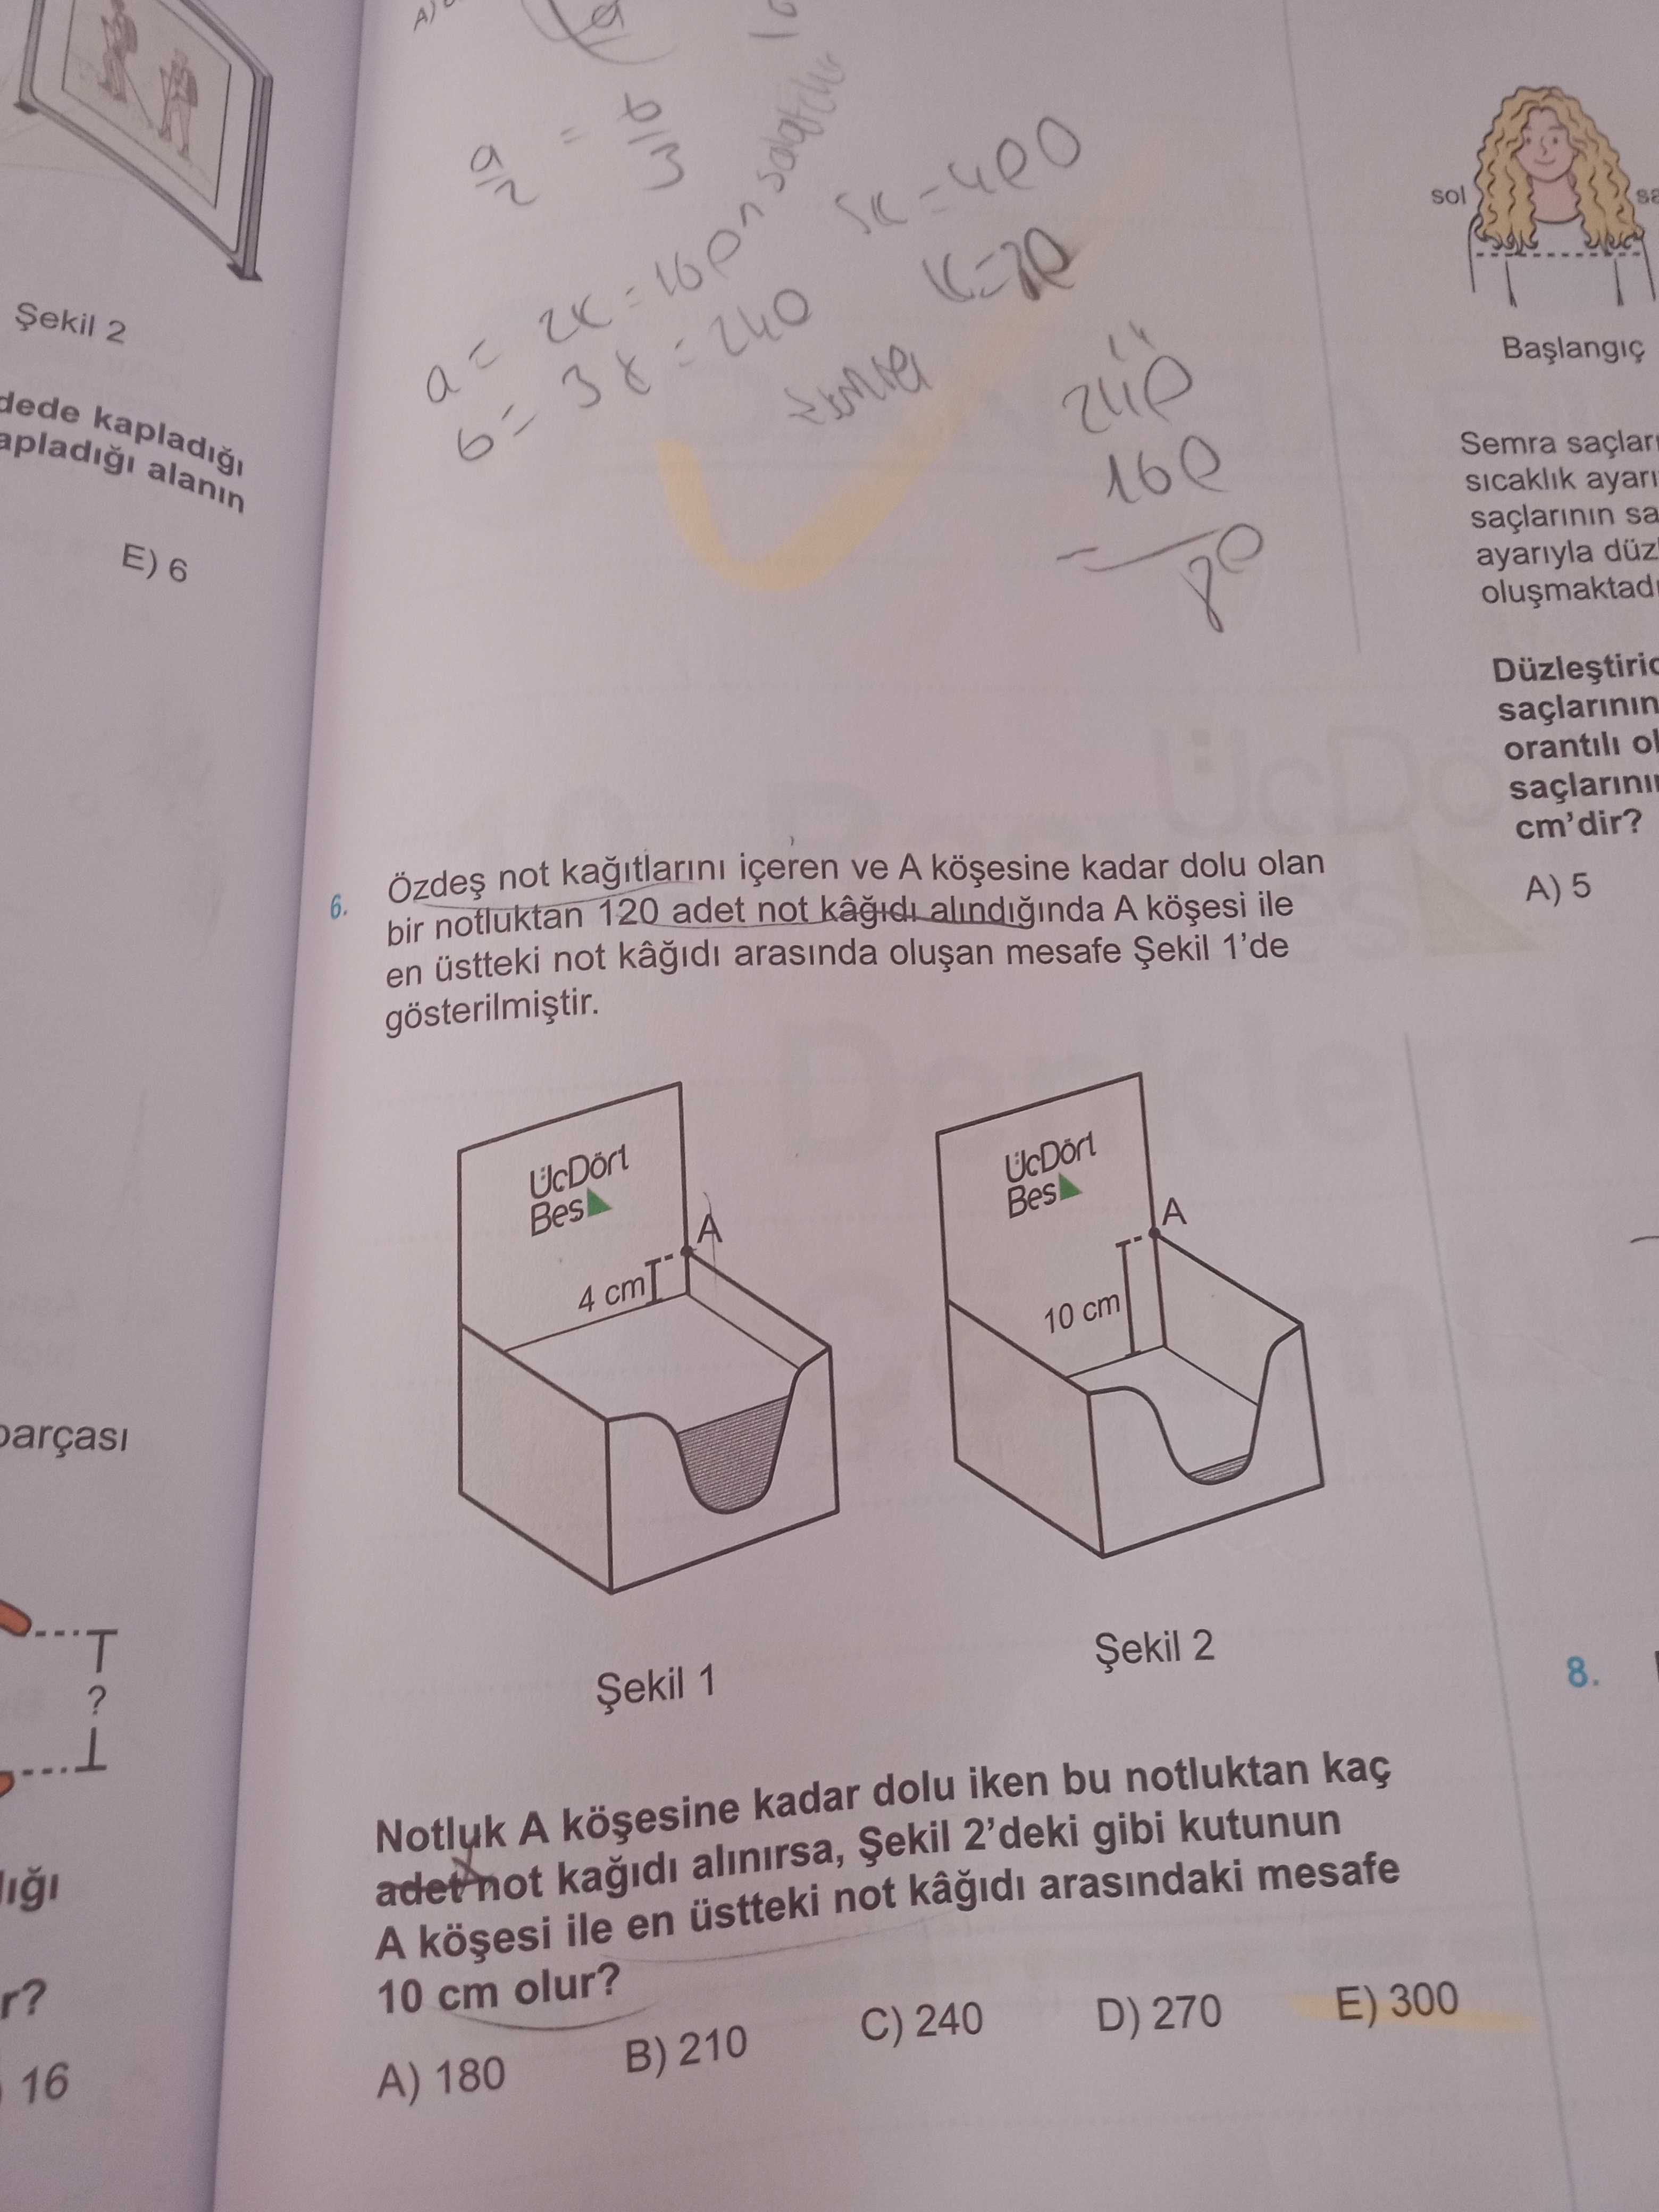 Şekil 2
dede kapladığı
apladığı alanın
E) 6
parçası
?
lığı
r?
16
A)
a/2 = b/3
a = 2k = 160
b = 3k = 240
5k = 400
k = 80
240
160
80
6. Özdeş not kağıtlarını içeren ve A köşesine kadar dolu olan
bir notluktan 120 adet not kâğıdı alındığında A köşesi ile
en üstteki not kâğıdı arasında oluşan mesafe Şekil 1'de
gösterilmiştir.
ÜcDört
Bes
A
4 cm
Şekil 1
ÜcDört
Bes
A
10 cm
Şekil 2
Notluk A köşesine kadar dolu iken bu notluktan kaç
adet not kağıdı alınırsa, Şekil 2'deki gibi kutunun
A köşesi ile en üstteki not kâğıdı arasındaki mesafe
10 cm olur?
A) 180 B) 210 C) 240 D) 270 E) 300
sol
Başlangıç
Semra saçları
sıcaklık ayarı
saçlarının sa
ayarıyla düz
oluşmaktadı
Düzleştiric
saçlarının
orantılı ol
saçlarını
cm'dir?
A) 5
8.